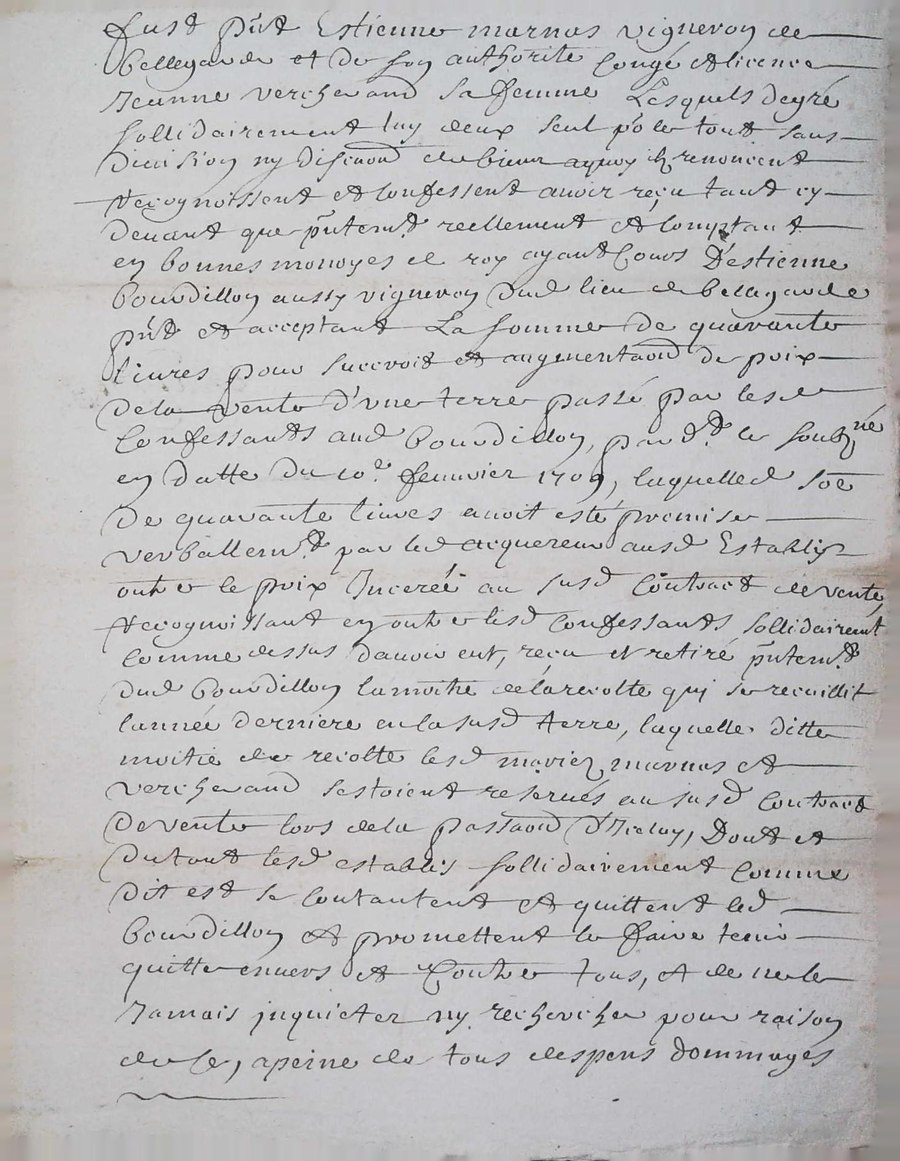 fust pñt Estienne marnas vigneron de
bellegarde et de son authorite Congé et licence
Jeanne vercherand sa femme Lesquels de gré
sollidairement luy deux seul po le tout sans
division ny discuõn de bien aquoy ilz renoncent
Recognoissent et Confessent avoir reçu tant cy
devant que pñtemt reellement et Comptant
en bonnes monoyes de roy ayant Cours D'estienne
bourdillon aussy vigneron dud lieu de bellegarde
pñt et acceptant La somme de quarante
livres pour surcroit et augmentaõn de prix
de la vente d'une terre passé par lesd
Confessants aud bourdillon, par dt le soubzné
en datte du 10e fevrier 1709, laquelled soē
De quarante livres avoit esté promise
verballemt par led acquereur ausd Establis
outre le prix Inceré au susd Contract de vente,
Recognoissant en outre lesd Confessants sollidairemt
Comme dessus d'avoir eut, reçu et retiré pñtemt
dud bourdillon la moitié de la recolte qui se recuillit
l'année derniere en la susd terre, laquelle ditte
moitié de recolte lesd mariez marnas et
vercherand s'estoient reservés au susd Contract
De vente lors de la passaõn d'Iceluy, Dont et
du tout lesd establis sollidairement Comme
dit est se Contantent et quittent led
bourdillon et promettent le faire tenir
quitte envers et Contre tous, et de ne le
Jamais inquieter ny rechercher pour raison
de ce, a peine de tous despens dommages